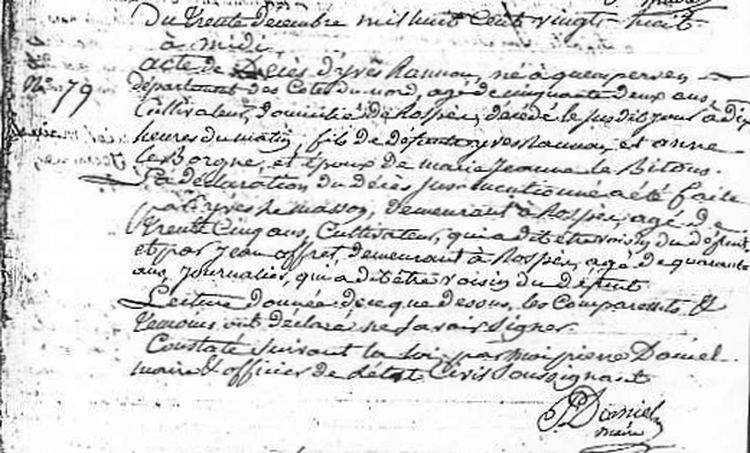 Du trente decembre mil huit cent vingt-huit
à midi
N.º 79
acte de Décès d'yves Rannou, né à quemperven
département des Cotes du nord, agé de cinquante deux ans,
Cultivateur, domicilié de Rospez, décédé le susdit jour à dix
heures du matin, fils de défunt yves Rannou, et anne
le Borgne, et Epoux de marie Jeanne le Bitous.
La déclaration du décès susmentionné a été faite
par yves le masson, demeurant à Rospez, agé de
trente Cinq ans, Cultivateur, qui a dit être voisin du défunt
et par Jean offret, demeurant à Rospez, agé de quarante
ans, Journalier, qui a dit être voisin du défunt
Lecture donnée de ce que dessus, les Comparants &
temoins ont déclaré ne savoir signer.
Constaté suivant la loi, par moi pierre Daniel
maire & officier de l'état Civil Soussignant
P. Daniel
maire